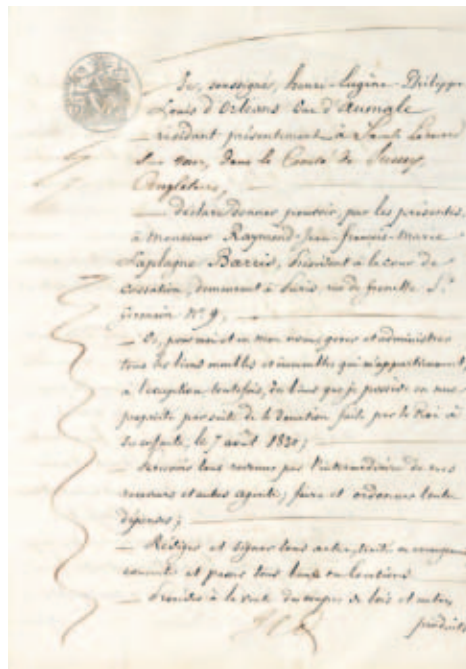 Je, soussigné, henri-Eugène-Philippe
Louis d'Orléans Duc d'Aumale
résidant présentement à Saint Léonard
Sur mer, dans le Comté de Sussex,
Angleterre,
déclare donner pouvoir, par les présentes
à Monsieur Raymond-Jean-françois-Marie
Laplagne Barris, Président à la cour de
cassation, demeurant à Paris, rue de grenelle St
Germain No 9,
De, pour moi et en mon nom, gérer et administrer
tous les biens meubles et immeubles qui m'appartiennent,
à l'exception toutefois, des biens que je possède en nue
propriété par suite de la donation faite par le Roi à
ses enfants, le 7 août 1830;
Recevoir tous revenus par l'intermédiaire de mes
receveurs et autres agents; faire et ordonner toutes
dépenses;
Rédiger et signer tous actes, traités et
et passer tous baux ou locations
Procéder à la vente des coupes de bois et autres
produits